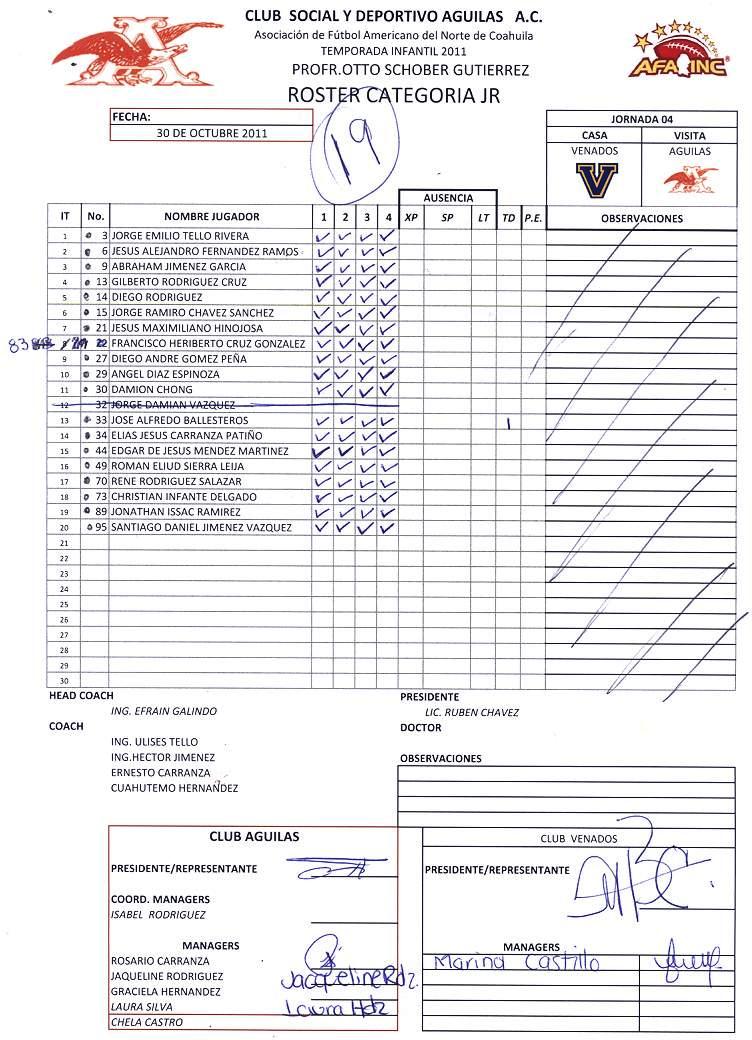 CLUB SOCIAL Y DEPORTIVO AGUILAS A.C.
Asociación de Fútbol Americano del Norte de Coahuila
TEMPORADA INFANTIL 2011
PROFR.OTTO SCHOBER GUTIERREZ
ROSTER CATEGORIA JR
A
AFAINC
FECHA:
30 DE OCTUBRE 2011
19
JORNADA 04
CASA VISITA
VENADOS AGUILAS
V
AUSENCIA
IT No. NOMBRE JUGADOR 1 2 3 4 XP SP LT TD P.E. OBSERVACIONES
1 3 JORGE EMILIO TELLO RIVERA ✓ ✓ ✓ ✓
2 6 JESUS ALEJANDRO FERNANDEZ RAMOS ✓ ✓ ✓ ✓
3 9 ABRAHAM JIMENEZ GARCIA ✓ ✓ ✓ ✓
4 13 GILBERTO RODRIGUEZ CRUZ ✓ ✓ ✓ ✓
5 14 DIEGO RODRIGUEZ ✓ ✓ ✓ ✓
6 15 JORGE RAMIRO CHAVEZ SANCHEZ ✓ ✓ ✓ ✓
7 21 JESUS MAXIMILIANO HINOJOSA ✓ ✓ ✓ ✓
83 8 22 FRANCISCO HERIBERTO CRUZ GONZALEZ ✓ ✓ ✓ ✓
9 27 DIEGO ANDRE GOMEZ PEÑA ✓ ✓ ✓ ✓
10 29 ANGEL DIAZ ESPINOZA ✓ ✓ ✓ ✓
11 30 DAMION CHONG ✓ ✓ ✓ ✓
12 32 JORGE DAMIAN VAZQUEZ
13 33 JOSE ALFREDO BALLESTEROS ✓ ✓ ✓ ✓ 1
14 34 ELIAS JESUS CARRANZA PATIÑO ✓ ✓ ✓ ✓
15 44 EDGAR DE JESUS MENDEZ MARTINEZ ✓ ✓ ✓ ✓
16 49 ROMAN ELIUD SIERRA LEIJA ✓ ✓ ✓ ✓
17 70 RENE RODRIGUEZ SALAZAR ✓ ✓ ✓ ✓
18 73 CHRISTIAN INFANTE DELGADO ✓ ✓ ✓ ✓
19 89 JONATHAN ISSAC RAMIREZ ✓ ✓ ✓ ✓
20 95 SANTIAGO DANIEL JIMENEZ VAZQUEZ ✓ ✓ ✓ ✓
21
22
23
24
25
26
27
28
29
30
HEAD COACH PRESIDENTE
ING. EFRAIN GALINDO LIC. RUBEN CHAVEZ
COACH DOCTOR
ING. ULISES TELLO
ING.HECTOR JIMENEZ OBSERVACIONES
ERNESTO CARRANZA
CUAHUTEMO HERNANDEZ
CLUB AGUILAS
PRESIDENTE/REPRESENTANTE
COORD. MANAGERS
ISABEL RODRIGUEZ
MANAGERS
ROSARIO CARRANZA
JAQUELINE RODRIGUEZ Jacqueline Rdz.
GRACIELA HERNANDEZ
LAURA SILVA Laura Hdz
CHELA CASTRO
CLUB VENADOS
PRESIDENTE/REPRESENTANTE
MANAGERS
Marina Castillo